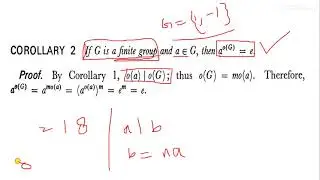 G = {1, -1}
COROLLARY 2 If G is a finite group and a ∈ G, then a^{o(G)} = e.
Proof. By Corollary 1, o(a) | o(G); thus o(G) = mo(a). Therefore,
a^{o(G)} = a^{mo(a)} = (a^{o(a)})^m = e^m = e.
a | b
b = na